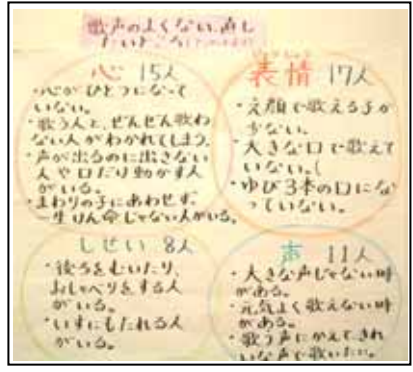 歌声のよくない、直し
たいところ
心 15人
・心がひとつになって
いない。
・歌う人と、ぜんぜん歌わ
ない人がわかれてしまう。
・声が出るのに出さない
人や口だけ動かす人
がいる。
・まわりの子にあわせず、
一生けん命じゃない人がいる。
表情 17人
・笑顔で歌える子が
少ない。
・大きな口で歌えて
いない。
・ゆび3本の口にな
っていない。
しせい 8人
・後ろをむいたり、
おしゃべりをする人
がいる。
・いすにもたれる人
がいる。
声 11人
・大きな声じゃない時
がある。
・元気よく歌えない時
がある。
・歌う声にかえてきれ
いな声で歌いたい。